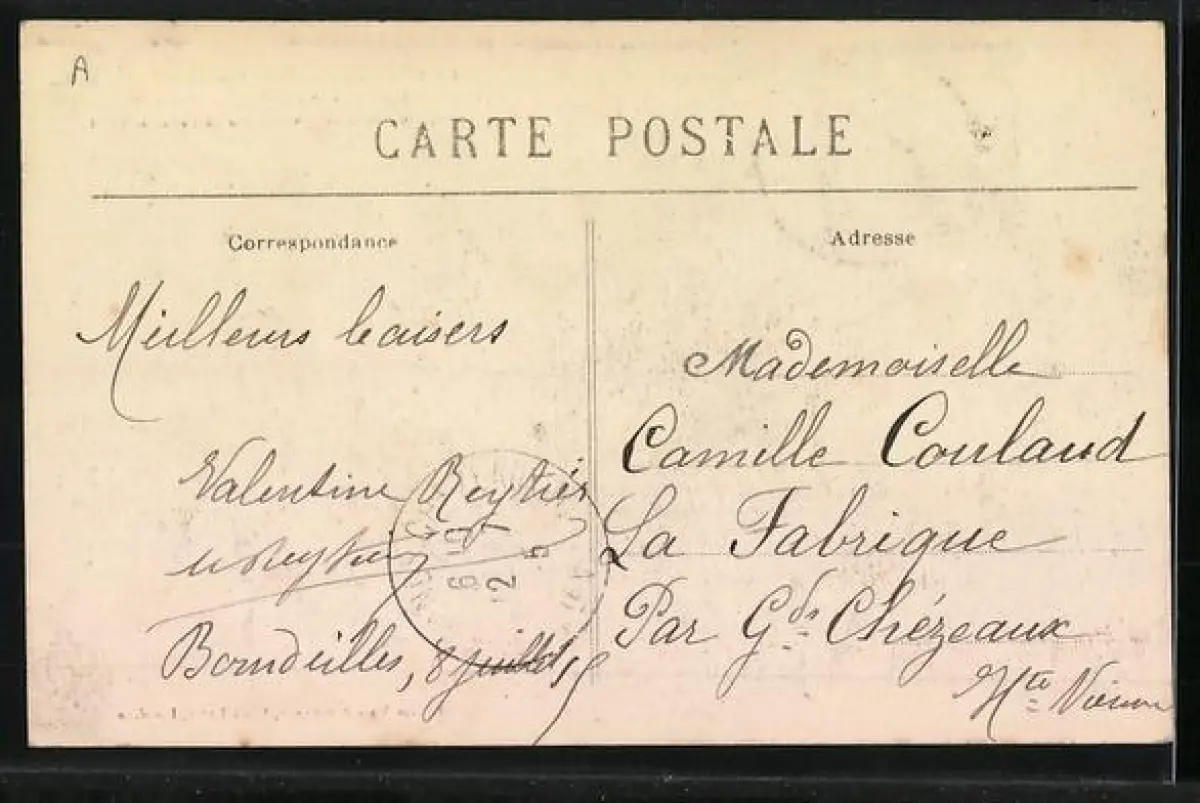 A
CARTE POSTALE
Correspondance
Meilleurs baisers
Valentine Reytier
Bourdeilles, 8 juillet
Adresse
Mademoiselle
Camille Coulaud
La Fabrique
Par Gds Chézeaux
Hte Vienne